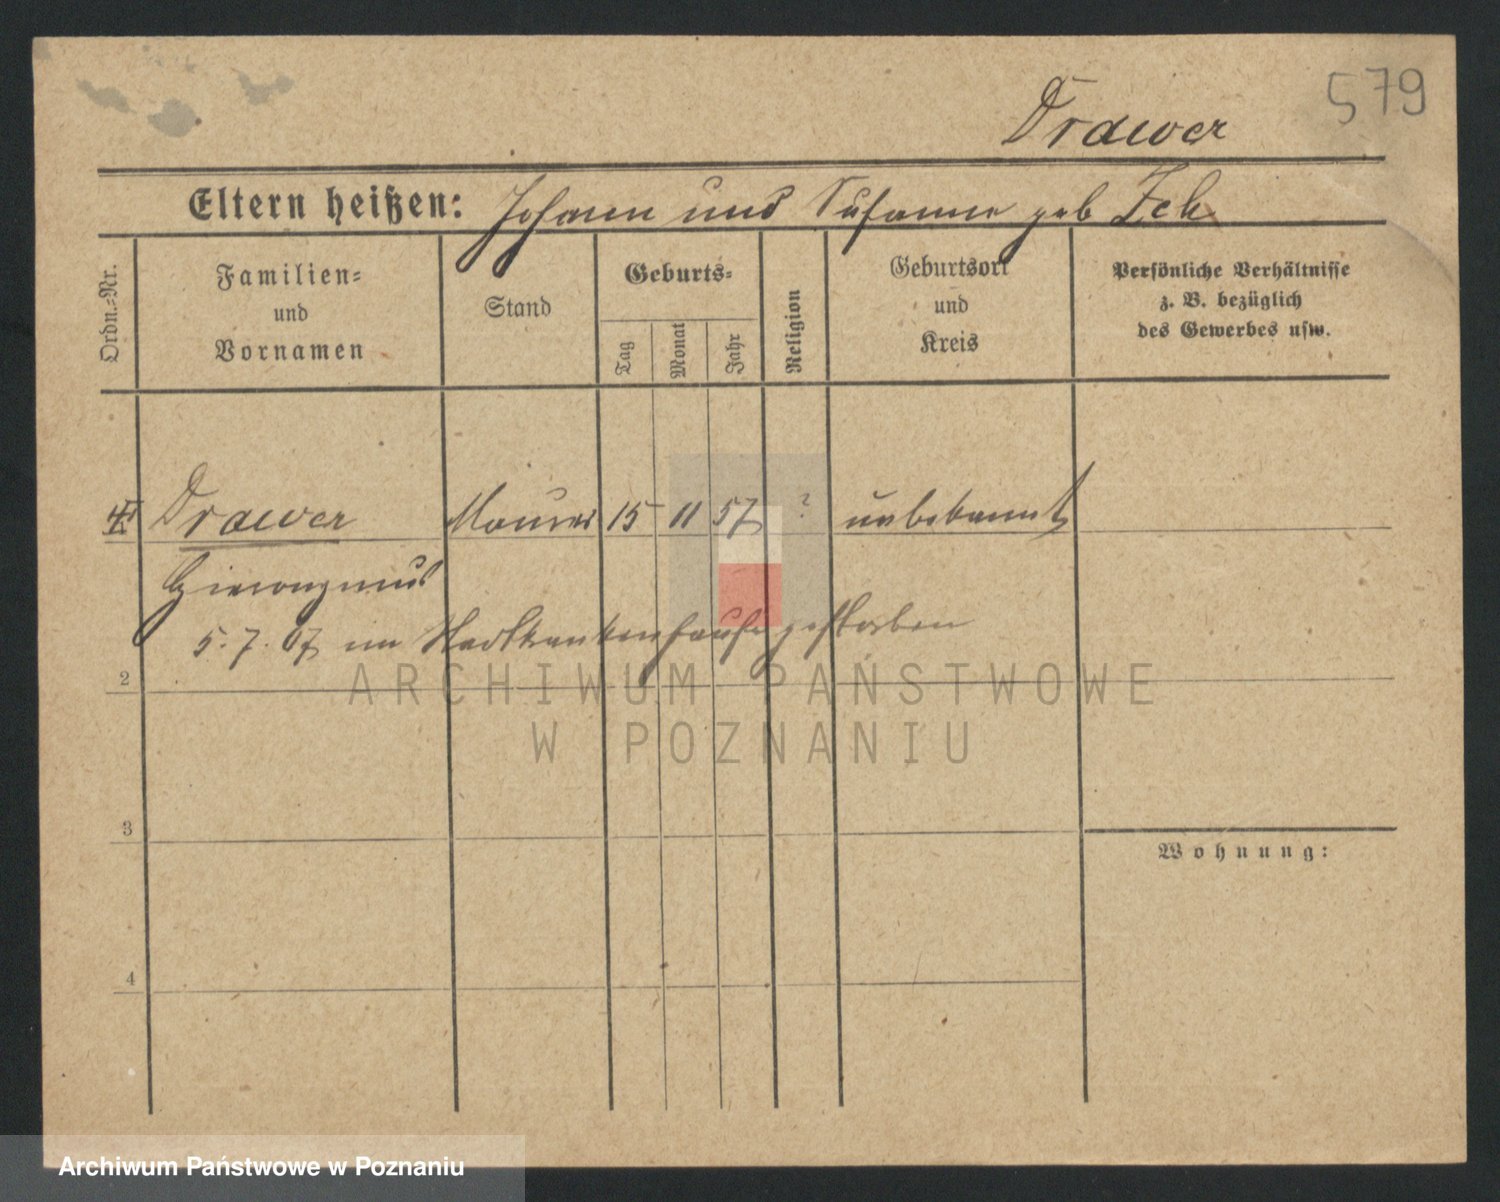 579
Drawer
Eltern heißen: Johann und Susanne geb Zeh
Ordn.-Nr.
Familien-
und
Vornamen
Stand
Geburts-
Tag
Monat
Jahr
Religion
Geburtsort
und
Kreis
Persönliche Verhältnisse
z. B. bezüglich
des Gewerbes usw.
Drawer Maurer 15 11 57 ? unbekannt
Hieronymus
5. 7. 07 im Stadtkrankenhause gestorben
2
ARCHIWUM PAŃSTWOWE
W POZNANIU
3
Wohnung:
4
Archiwum Państwowe w Poznaniu